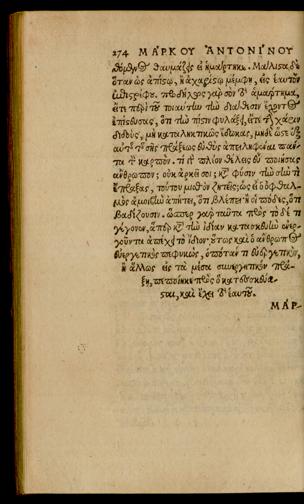 274 ΜΑΡΚΟΥ ΑΝΤΟΝΙΝΟΥ
θαυμάζης εἰ ἡμάρτηκε. Μάλιστα δὲ
ὅταν ὡς ἀπίστῳ, ἢ ἀχαρίστῳ μέμφῃ, εἰς ἑαυτὸν
ἐπιστρέφου. πρόδηλος γὰρ σὸν τὸ ἁμάρτημα,
εἴτε περὶ τοῦ τοιαύτην τὴν διάθεσιν ἔχοντος
ἐπίστευσας, ὅτι τὴν πίστιν φυλάξει, εἴτε τὴν χάριν
διδοὺς, μὴ καταληκτικῶς ἔδωκας, μηδὲ ὥστε ἐξ
αὐτῆς τῆς σῆς πράξεως εὐθὺς ἀπειληφέναι πάν-
τα τὸν καρπόν. τί πλέον θέλεις εὖ ποιήσας
ἄνθρωπον; οὐκ ἀρκεῖ σοι; κατὰ φύσιν τὴν σὴν τι
ἔπραξας, τούτου μισθὸν ζητεῖς; ὡς εἰ ὁ ὀφθαλ-
μὸς ἀμοιβὴν ἀπῄτει, ὅτι βλέπει· ἢ οἱ πόδες, ὅτι
βαδίζουσιν. ὥσπερ γὰρ ταῦτα πρὸς τὸ δέ τι
γέγονεν, ἅπερ κατὰ τὴν ἰδίαν κατασκευὴν ἐνερ-
γοῦντα ἀπέχει τὸ ἴδιον· οὕτως καὶ ὁ ἄνθρωπος
εὐεργετικὸς πεφυκὼς, ὁπόταν τι εὐεργετικὸν,
ἢ ἄλλως εἰς τὰ μέσα συνεργητικὸν πρά-
ξῃ, πεποίηκε πρὸς ὃ κατεσκεύα-
σται, καὶ ἔχει τὸ ἑαυτοῦ.
ΜΑΡ-